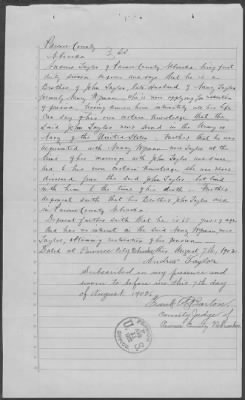 Pawnee County
Nebraska } SS.
Andrew Taylor of Pawnee County Nebraska being first
duly sworn deposes and says that he is a
Brother of John Taylor, late Husband of Mary Taylor
formerly Mary Wyman who is now applying for
of pension. Having known him intimately all his life
can say of his own certain knowledge that the
said John Taylor never served in the Army or
Navy of the United States. Further that he was
acquainted with Mary Wyman now Taylor at the
time of her marriage with John Taylor and since
and to his own certain knowledge she was never
divorced from the said John Taylor but lived
with him to the time of his death. Further
deponent saith that his Brother John Taylor died
in Pawnee County Nebraska.
Deponent further saith that he is 65 years of age
and has no interest in the said Mary Wyman now
Taylor, obtaining restoration of her pension.
Dated at Pawnee City Nebraska this August 7th, 1902
Andrew Taylor
Subscribed in my presence and
sworn to before me this 7th day
of August 1902.
Frank A. Barton
County Judge of
Pawnee County Nebraska